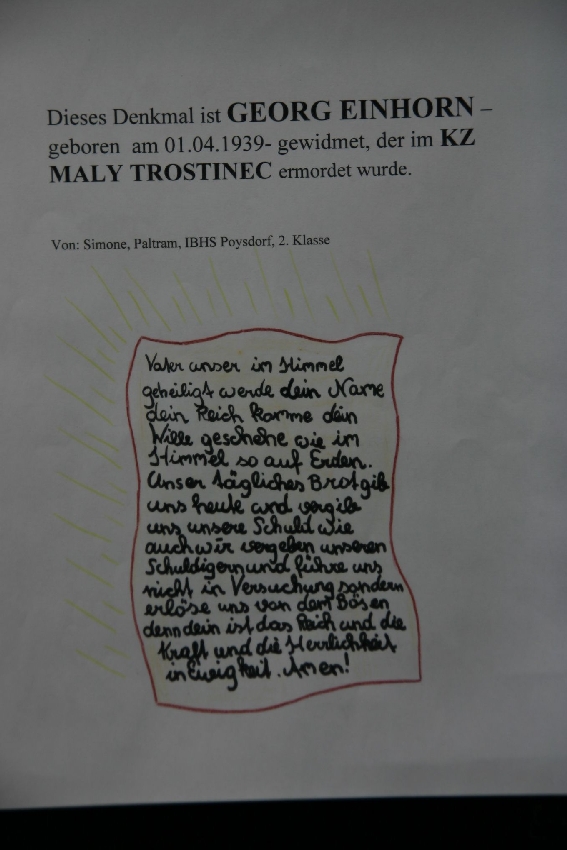 Dieses Denkmal ist GEORG EINHORN –
geboren am 01.04.1939- gewidmet, der im KZ
MALY TROSTINEC ermordet wurde.
Von: Simone, Paltram, IBHS Poysdorf, 2. Klasse
Vater unser im Himmel
geheiligt werde dein Name
dein Reich komme dein
Wille geschehe wie im
Himmel so auf Erden.
Unser tägliches Brot gib
uns heute und vergib
uns unsere Schuld wie
auch wir vergeben unseren
Schuldigern und führe uns
nicht in Versuchung sondern
erlöse uns von dem Bösen
denn dein ist das Reich und die
Kraft und die Herrlichkeit
in Ewigkeit. Amen!